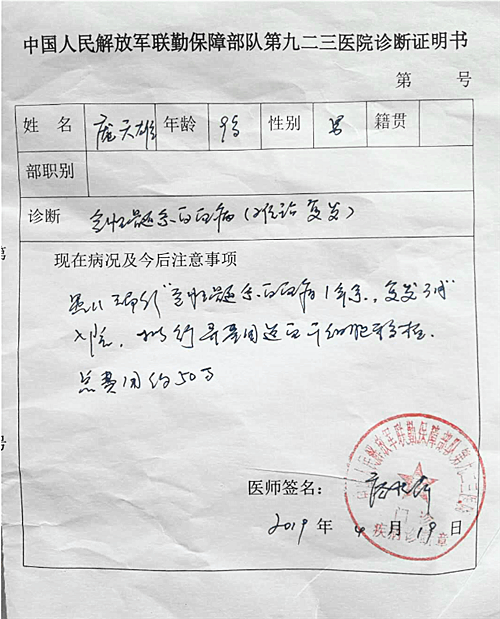 中国人民解放军联勤保障部队第九二三医院诊断证明书
第 号
姓 名 庞天雄 年龄 9岁 性别 男 籍贯
部职别
诊断 急性髓系白血病(复发)
现在病况及今后注意事项
患儿 "急性髓系白血病1年余,复发
入院, 异基因造血干细胞移植.
总费用约50万
医师签名:
2019 年 4 月 19 日
中国人民解放军联勤保障部队第九二三医院
门诊
疾病诊断章
第
号